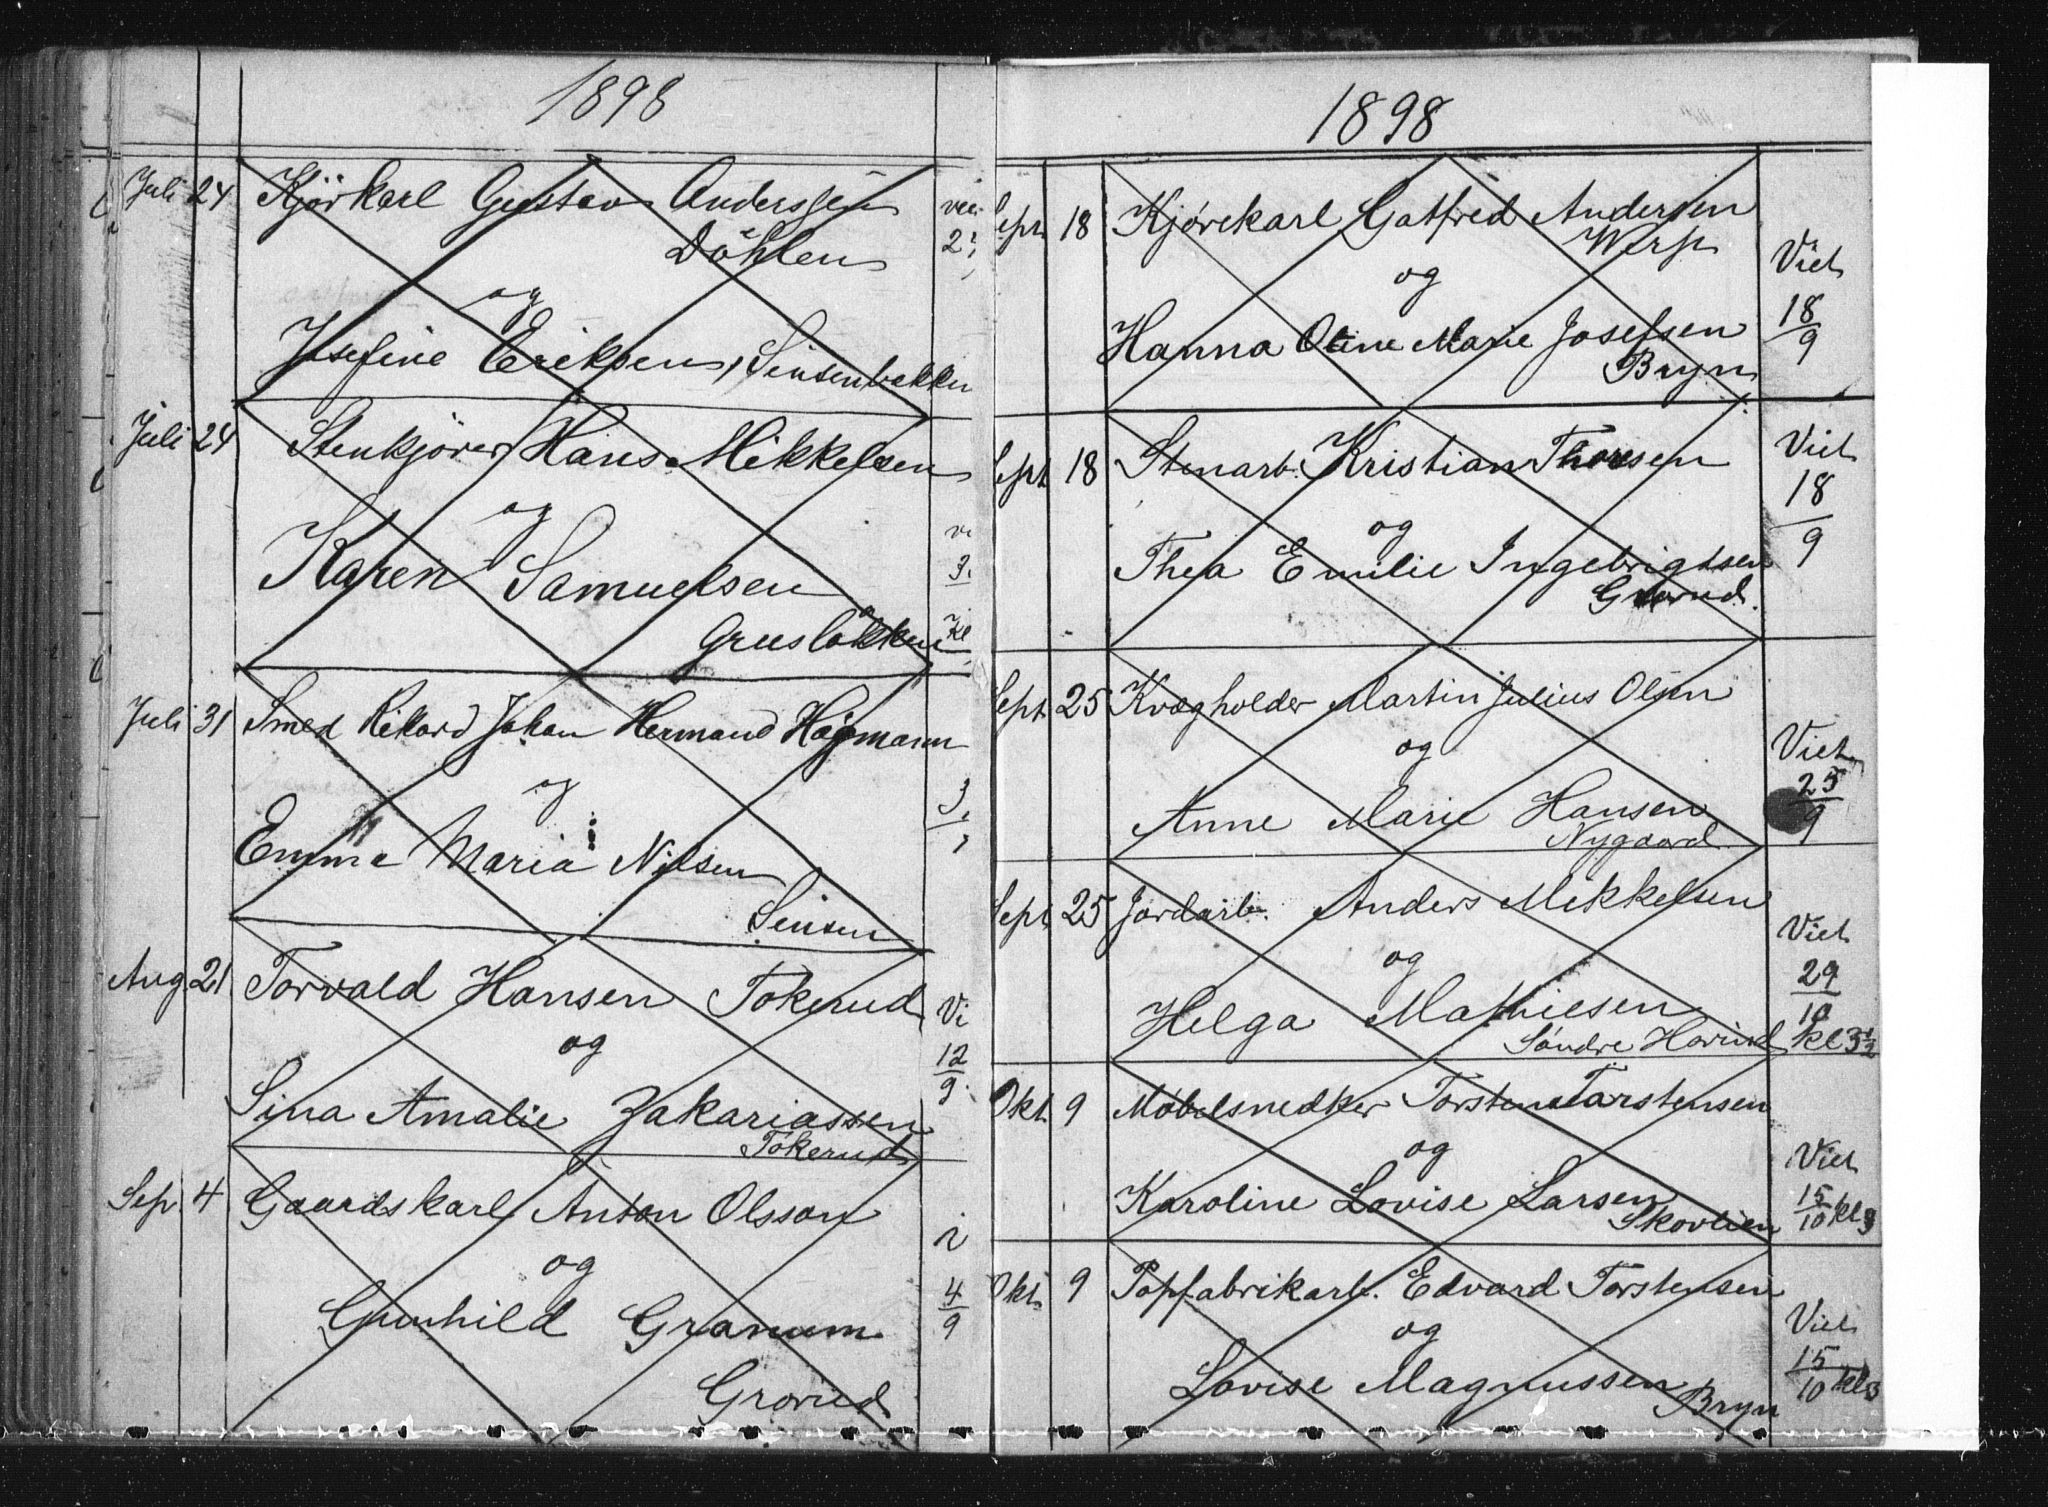 1898
Juli 24 Kjörkarl Gustav Anderssen
Döhlen
og
Josefine Eriksen, Sinsenbakken
Juli 24 Stenkjører Hans Mikkelsen
og
Karen Samuelsen
Grusløkken
Juli 31 Smed Rikard Johan Hermand
og
Emma Maria Nilsen
Sinsen
Aug 21 Torvald Hansen Tokerud
og
12
9
Sina Amalie Zakariassen
Tokerud
Sep 4 Gaardskarl Anton Olsson
og
4
9
Gunhild Granum
Grorud
1898
Sept 18 Kjørekarl Gotfred Andersen
og
Viet
18
9
Hanna Oline Marie Josefsen
Bryn
Sept 18 Stenarb. Kristian Thoresen
Viet
18
9
og
Thea Emilie Ingebrigtsen
Grorud.
Sept 25 Kvægholder Martin Julius Olsen
og
Viet
25
9
Anne Marie Hansen
Nygaard
Sept 25 Jordarb. Anders Mikkelsen
og
Viet
29
10
kl 3½
Helga Mathiesen
Søndre Hovind
Okt. 9 Møbelsnedker Torsten Tarstensen
og
Viet
15
10 kl 3
Karoline Lovise Larsen
Skovlien
Okt. 9 Papfabrikarb. Edvard Torstensen
og
Viet
15
10 kl 3
Lovise Magnussen
Bryn